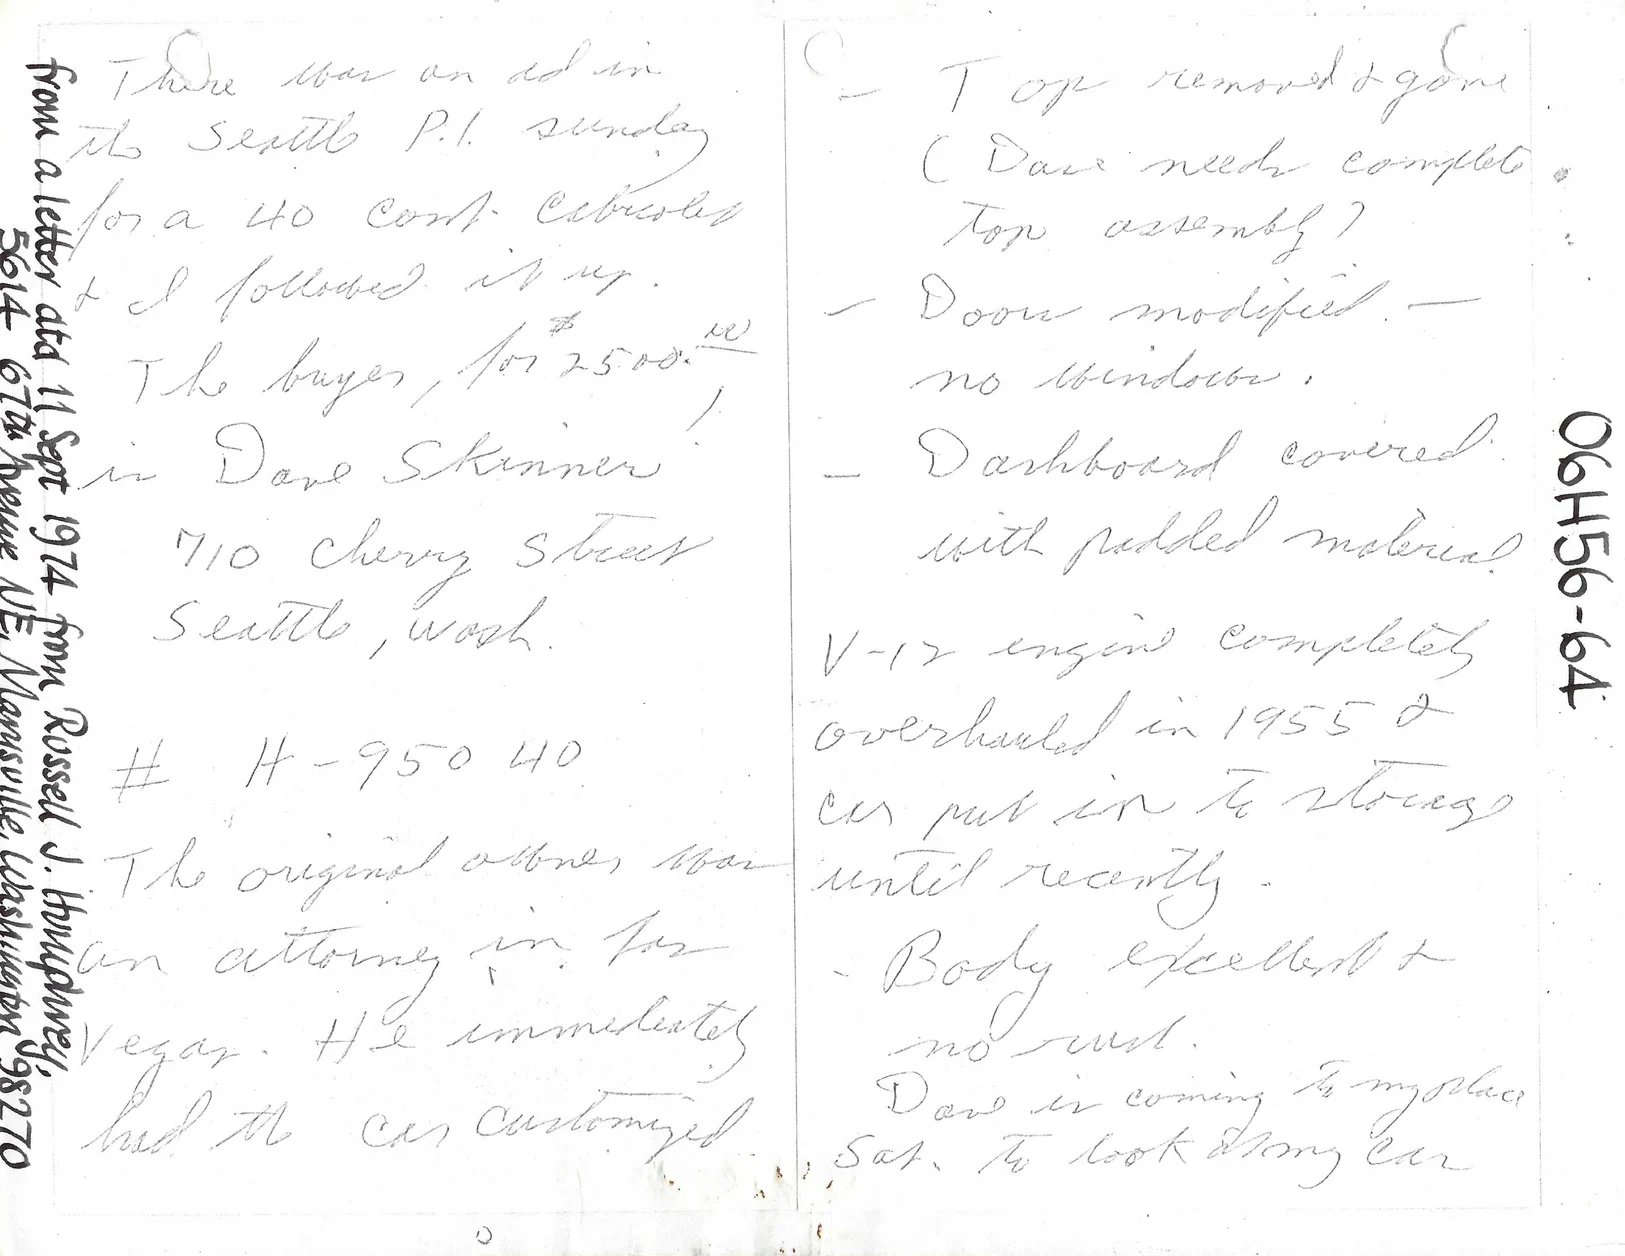 There was an ad in
the Seattle P.I. sunday
for a 40 cont. Cabriolet
& I followed it up.
The buyer, for $2500.00,
is Dave Skinner
710 Cherry Street
Seattle, Wash.
# H-95040
The original owner was
an attorney in Las
Vegas. He immediately
had the car customized
- Top removed & gone
(Dave needs complete
top assembly)
- Doors modified. -
no windows.
- Dashboard covered
with padded material.
V-12 engine completely
overhauled in 1955 &
car put in to storage
until recently.
- Body excellent &
no rust.
Dave is coming to my place
Sat. to look at my car
from a letter dtd 11 Sept 1974 from Russell J. Humphrey,
5614 67th Avenue NE, Marysville, Washington 98270
06H56-64